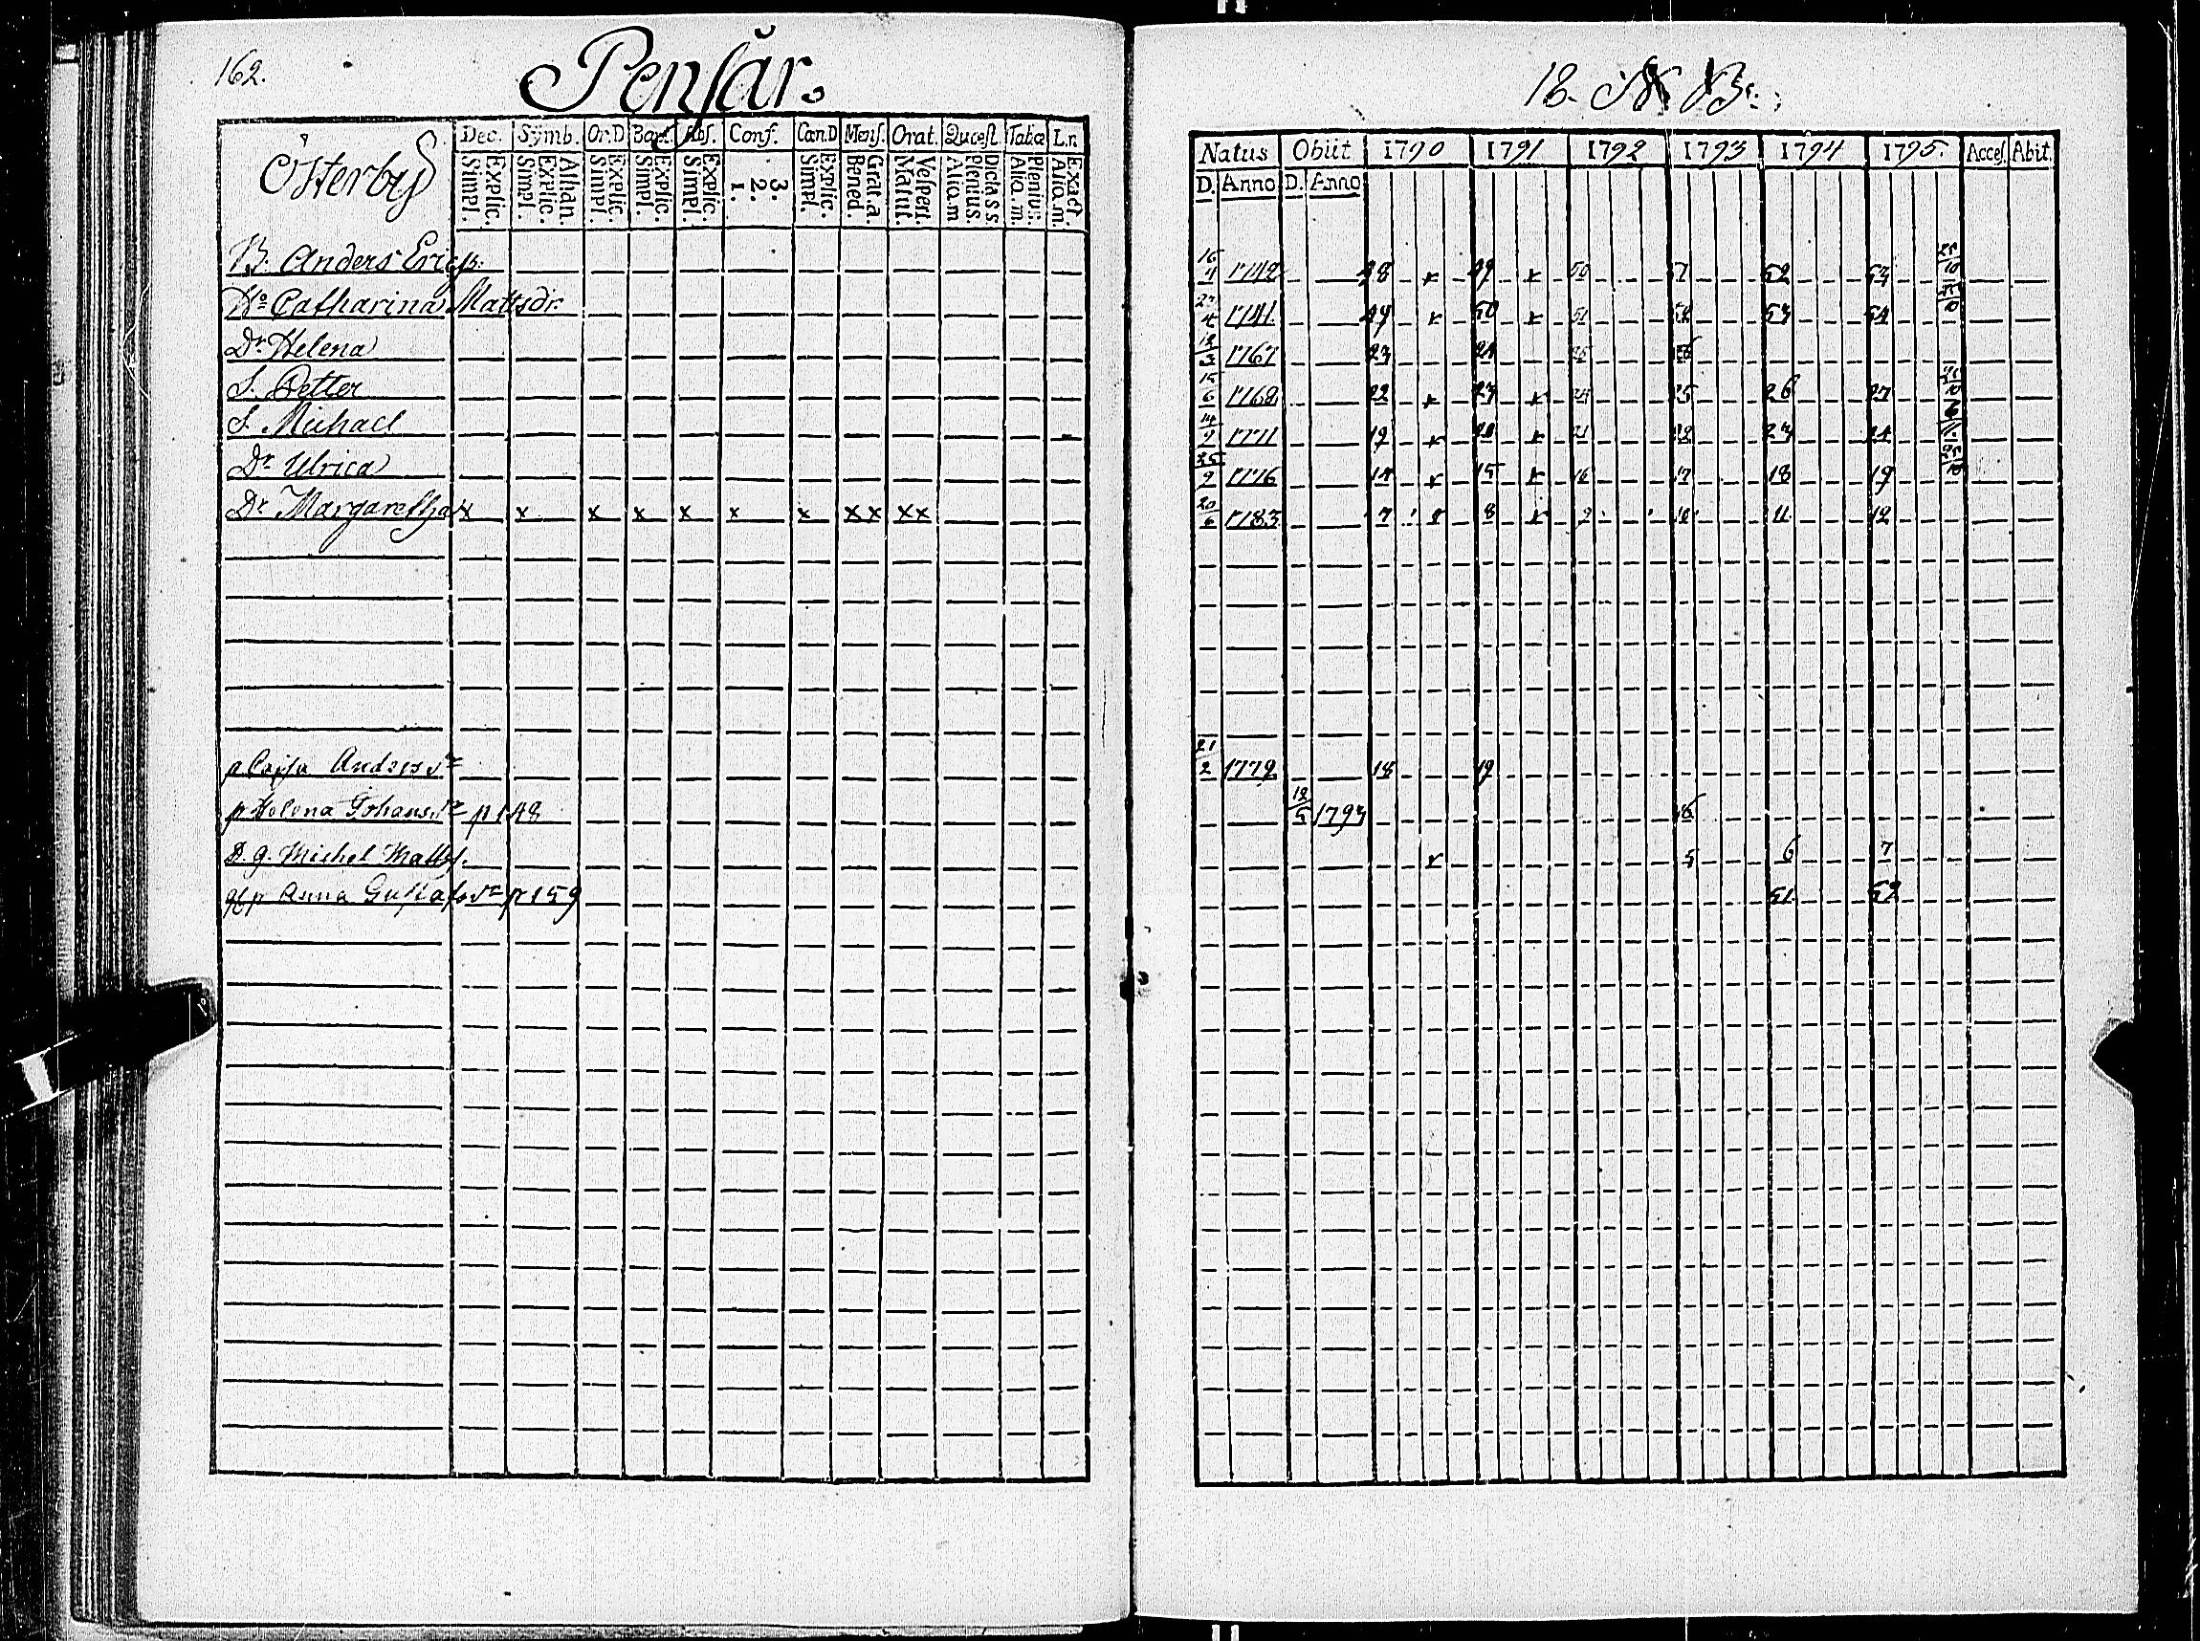 162. Pensar.
Österby
Dec. Symb. Or.D Bapt. Abs. Conf. Cœn.D Mens. Orat. Quæst Tabæ Ln
Explic. Simpl. Athan. Explic. Simpl. Explic. Simpl. Explic. Simpl. Explic. Simpl. 3. 2. 1. Explic. Simpl. Grat.a. Bened. Vespert. Matut. Dictass. Plenius. Aliq.m Plenius. Aliq.m. Exact. Aliq.m.
B. Anders Ericss.
Ho Catharina Mattsdr.
Dr Helena
S. Petter
S. Michael
Dr Ulrica
Dr Margaretha x x x x x x x x x x x
p Cajsa Andersdr
p Helena Johansdr p 148
D. g. Michel Matts.
p Anna Gustafsdr p 159
18.
Natus Obiit 1790 1791 1792 1793 1794 1795. Acces. Abit.
D. Anno D. Anno
16/4 1742 48 x 49 x 50 51 52 53
1741 49 x 50 x 51 52 53 54
12/3 1767 23 24 25 26
15/6 1768 22 x 23 x 24 25 26 27
14/9 1771 19 x 20 x 21 22 23 24
25/9 1776 14 x 15 x 16 17 18 19
20/6 1783 7 x 8 x 9 10 11 12
21/2 1772 18 19
12/5 1793
x 5 6 7
51 52